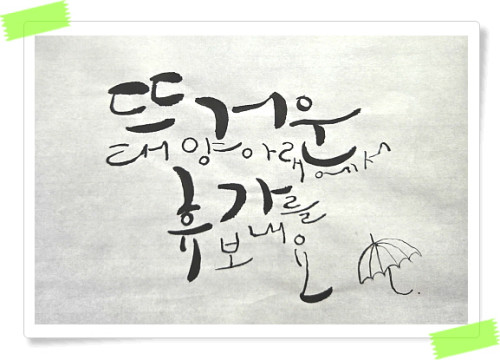 뜨거운
태양아래에서
휴가를
보내요